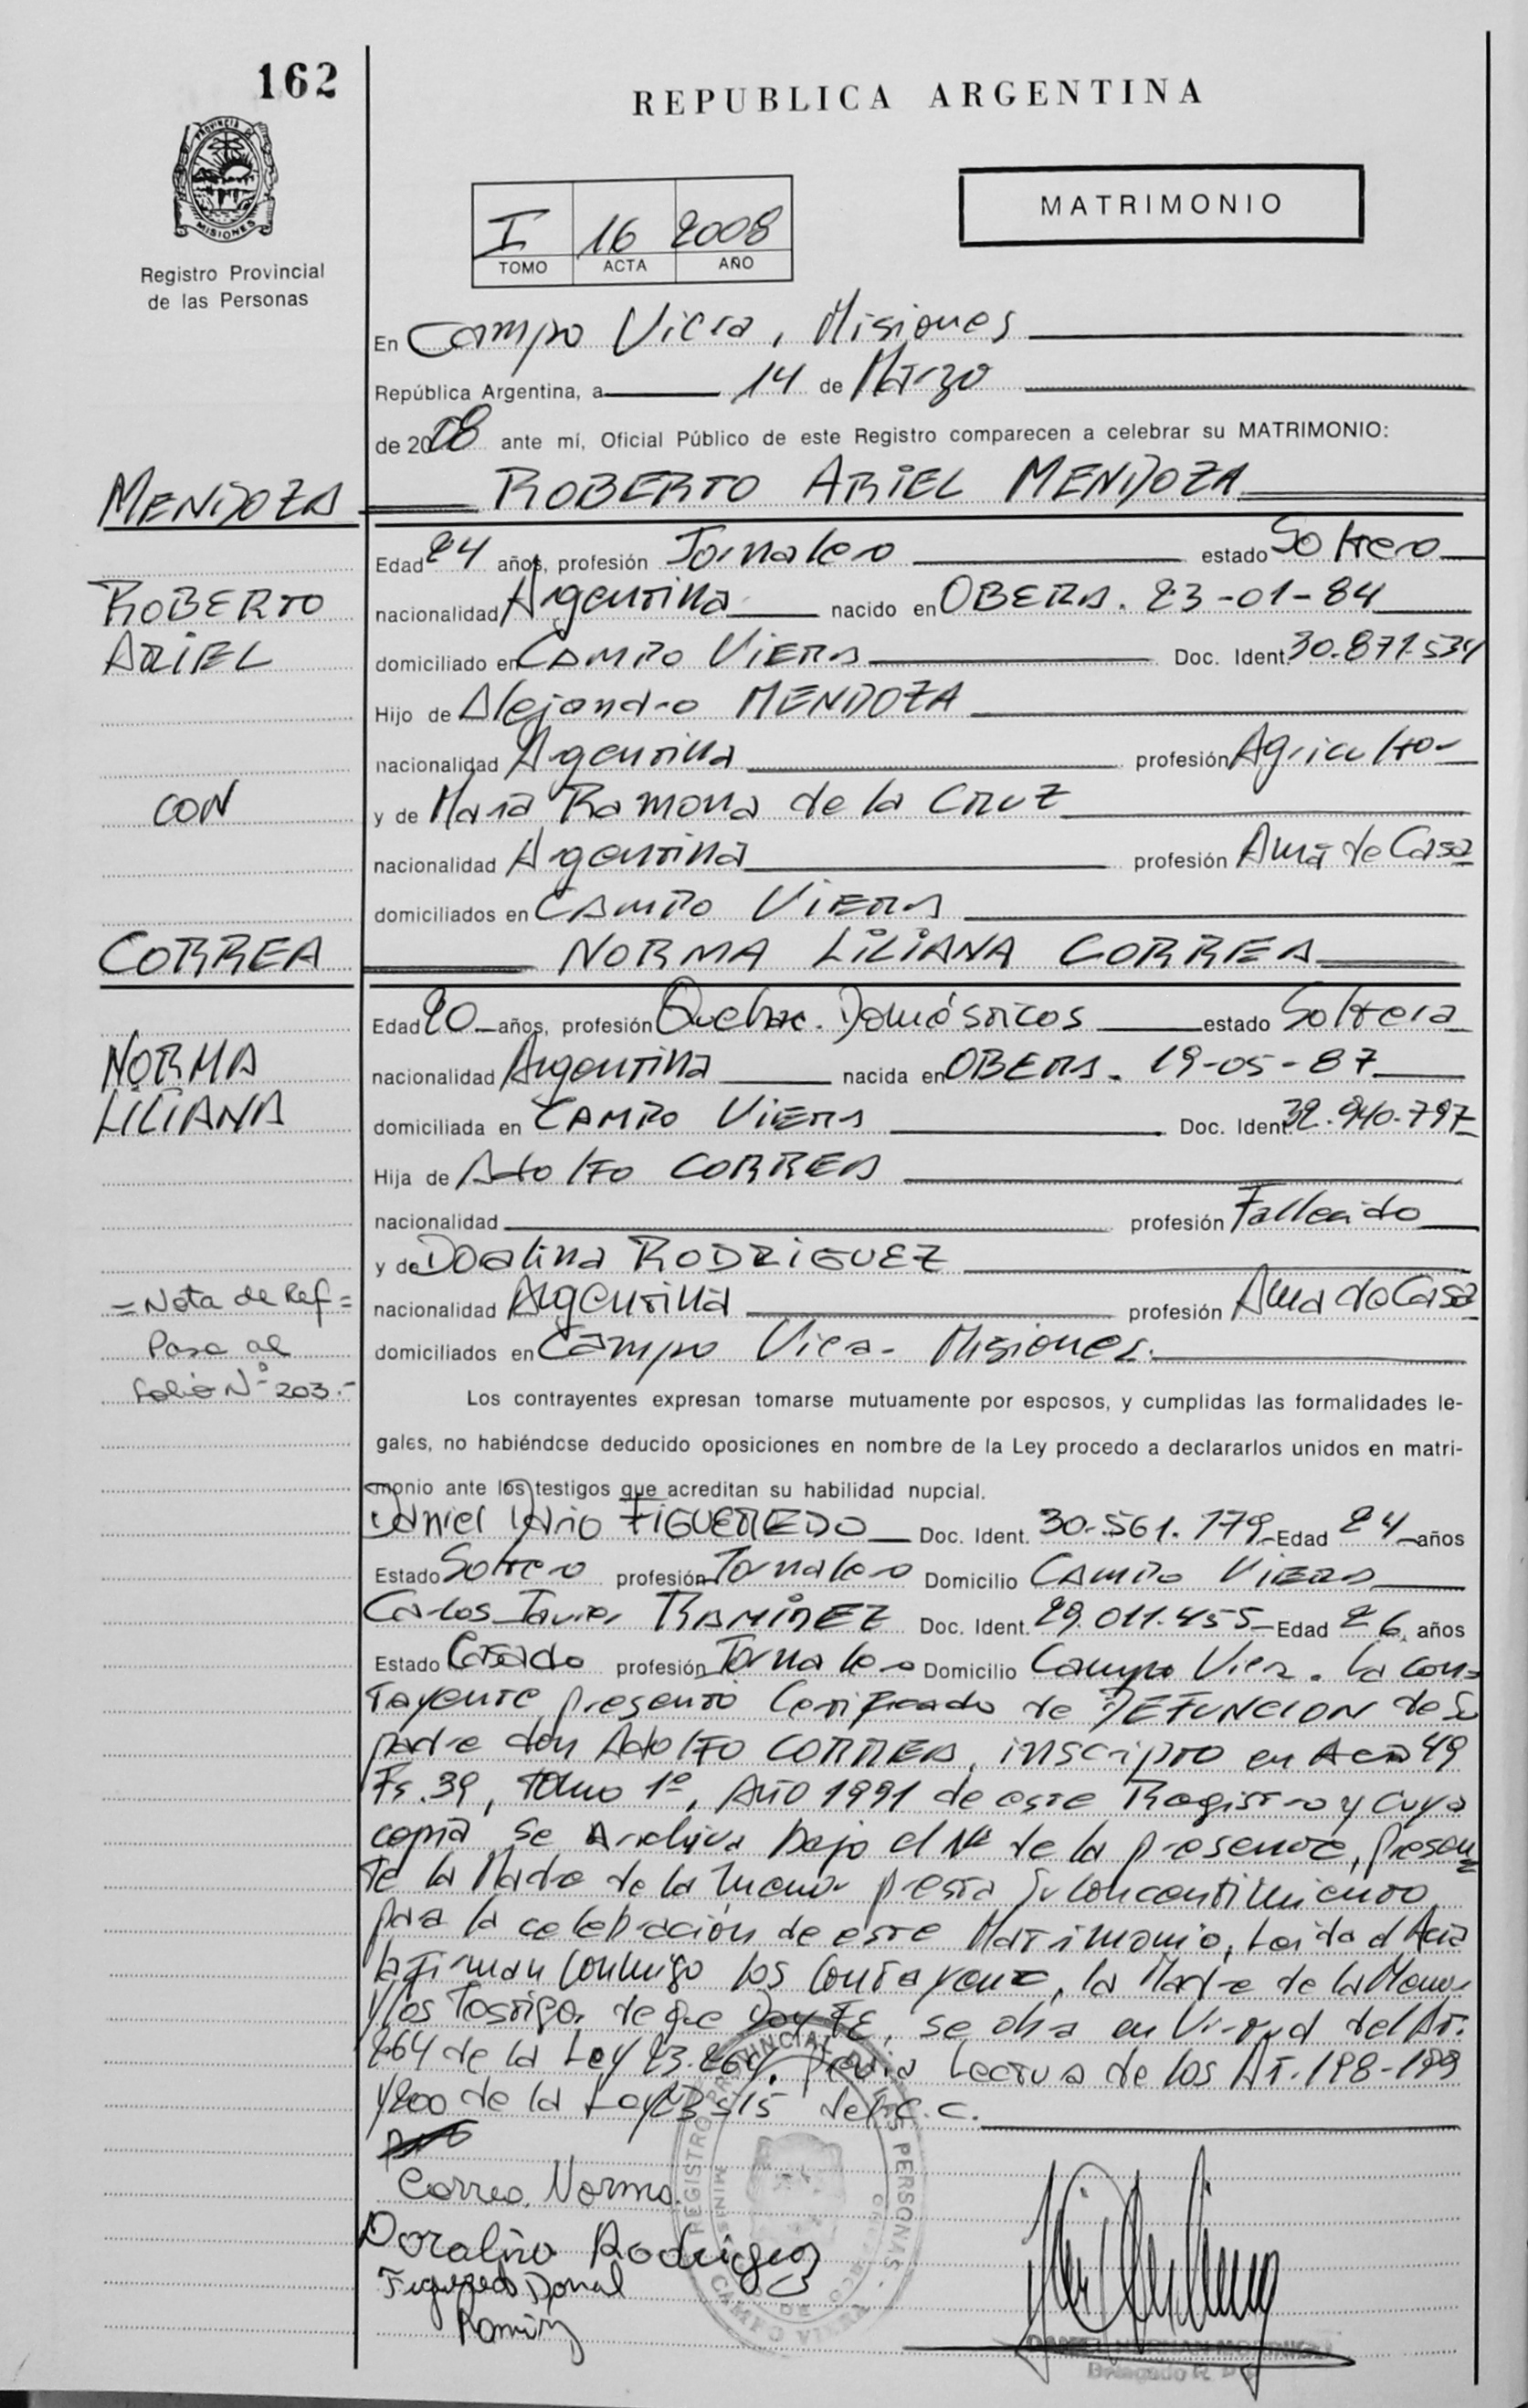 162
REPUBLICA ARGENTINA
PROVINCIA DE
MISIONES
Registro Provincial
de las Personas
I 16 2008
TOMO ACTA AÑO
MATRIMONIO
En Campo Viera, Misiones
República Argentina, a 14 de Marzo
de 2008 ante mí, Oficial Público de este Registro comparecen a celebrar su MATRIMONIO:
MENDOZA ROBERTO ARIEL MENDOZA
Edad 24 años, profesión Jornalero estado Soltero
ROBERTO nacionalidad Argentina nacido en OBERA. 23-01-84
ARIEL domiciliado en CAMPO VIERA Doc. Ident. 30.871.534
Hijo de Alejandro MENDOZA
nacionalidad Argentina profesión Agricultor
CON y de Maria Ramona de la CRUZ
nacionalidad Argentina profesión Ama de Casa
domiciliados en CAMPO VIERA
CORREA NORMA LILIANA CORREA
Edad 20 años, profesión Quehac. Domésticos estado Soltera
NORMA nacionalidad Argentina nacida en OBERA. 19-05-87
LILIANA domiciliada en CAMPO VIERA Doc. Ident. 32.940.797
Hija de Adolfo CORREA
nacionalidad profesión Fallecido
y de Doalina RODRIGUEZ
=Nota de Ref= nacionalidad Argentina profesión Ama de Casa
Pasa al domiciliados en Campo Viera - Misiones.
Folio Nº 203.-
Los contrayentes expresan tomarse mutuamente por esposos, y cumplidas las formalidades le-
gales, no habiéndose deducido oposiciones en nombre de la Ley procedo a declararlos unidos en matri-
monio ante los testigos que acreditan su habilidad nupcial.
Daniel Dario FIGUEREDO Doc. Ident. 30.561.179 Edad 24 años
Estado Soltero profesión Jornalero Domicilio CAMPO VIERA
Carlos Javier RAMIREZ Doc. Ident. 29.011.455 Edad 26 años
Estado Casado profesión Jornalero Domicilio Campo Viera. La con=
trayente presentó Certificado de DEFUNCION de Su
padre don Adolfo CORREA, inscripto en Acta 49
Fs. 39, Tomo 1º, Año 1991 de este Registro y cuya
copia se Archiva bajo el Nº de la presente, presen=
te la Madre de la menor presta Su concentimiento
para la celebración de este Matrimonio, Leida el Acta
la Firman conmigo los Contrayente, la Madre de la Menor
y los Testigo, de que Doy FE, se obra en Virtud del Art.
264 de la Ley 23.264, previa Lectura de los Art. 198-199
y 200 de la Ley 23515 del C.C.
Correa, Norma.
Doralina Rodriguez
Figueredo Daniel
Ramirez
REGISTRO PROVINCIAL DE LAS PERSONAS
CAMPO VIERA
Delegado R. P. P.